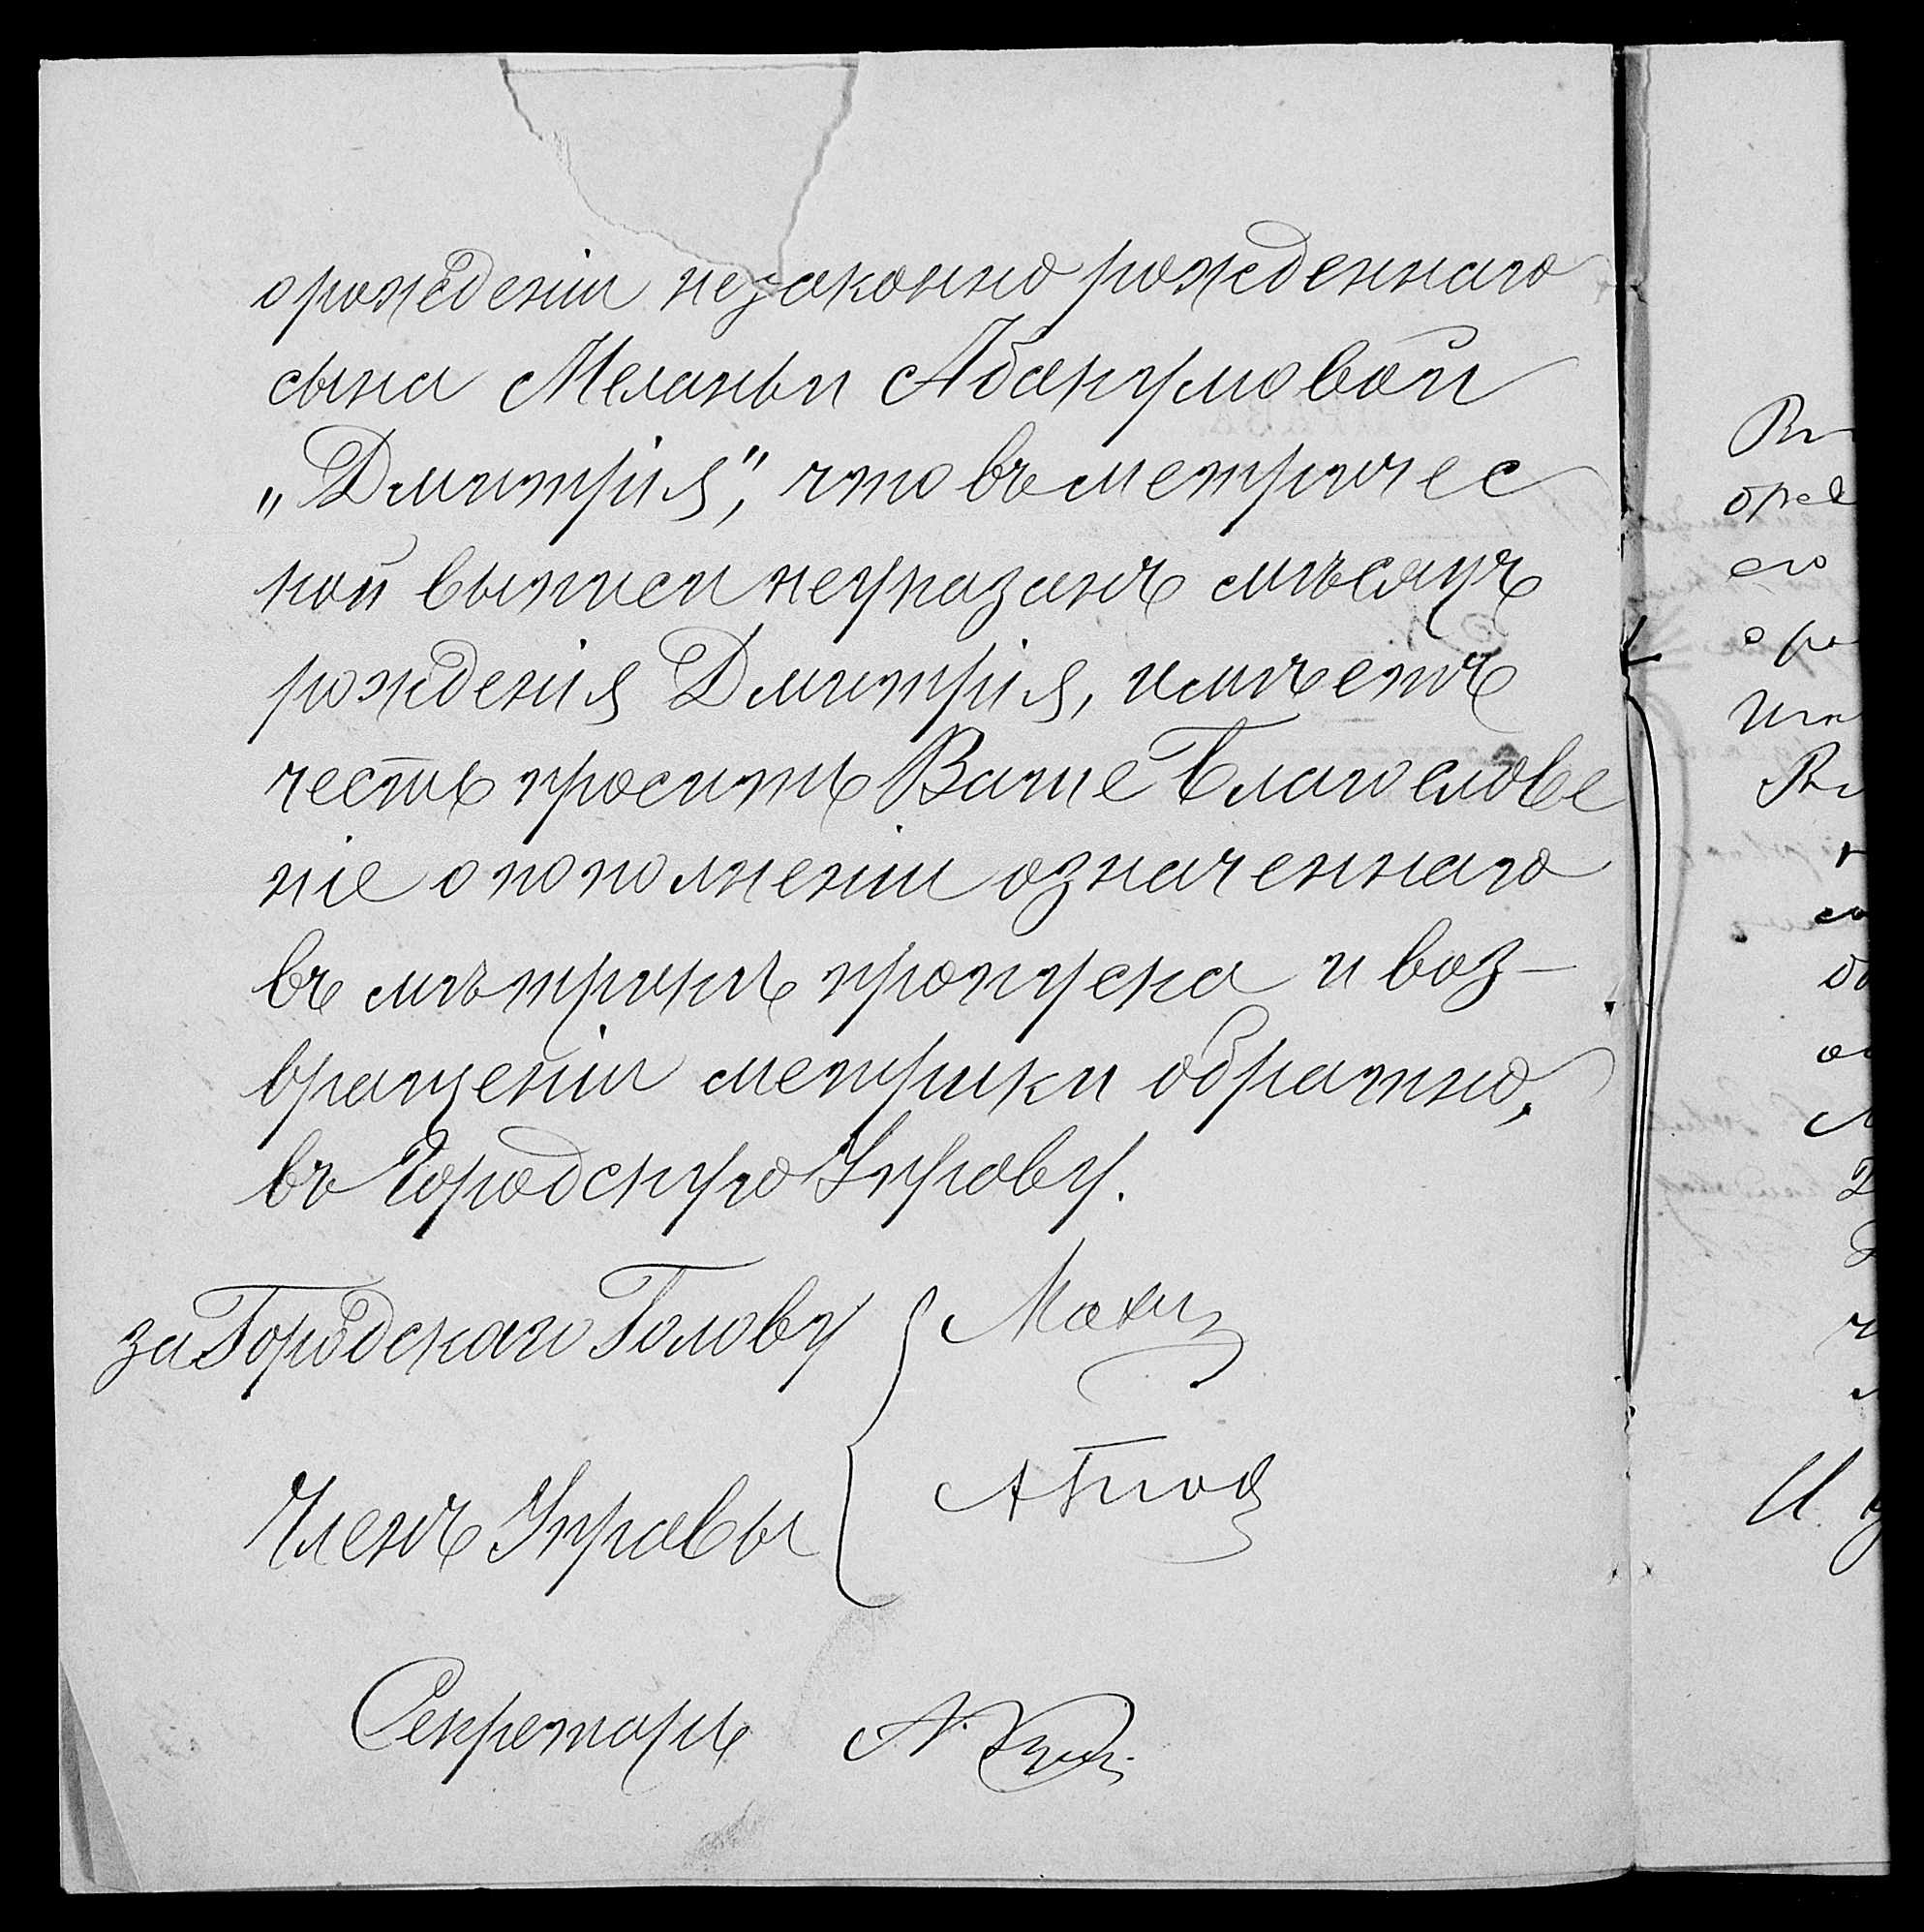 о рождении незаконно рожденнаго
сына Меланьи Абакумовой
„Дмитрія", что въ метричес
кой выписи не указанъ мѣсяцъ
рожденія Дмитрія, имѣетъ
честь просить Ваше Благослове
ніе о пополненіи означеннаго
въ мѣтрикѣ пропуска и воз-
вращеніи метрики обратно,
въ Городскую Управу.
за Городскаго Голову
Членъ Управы
Секретарь